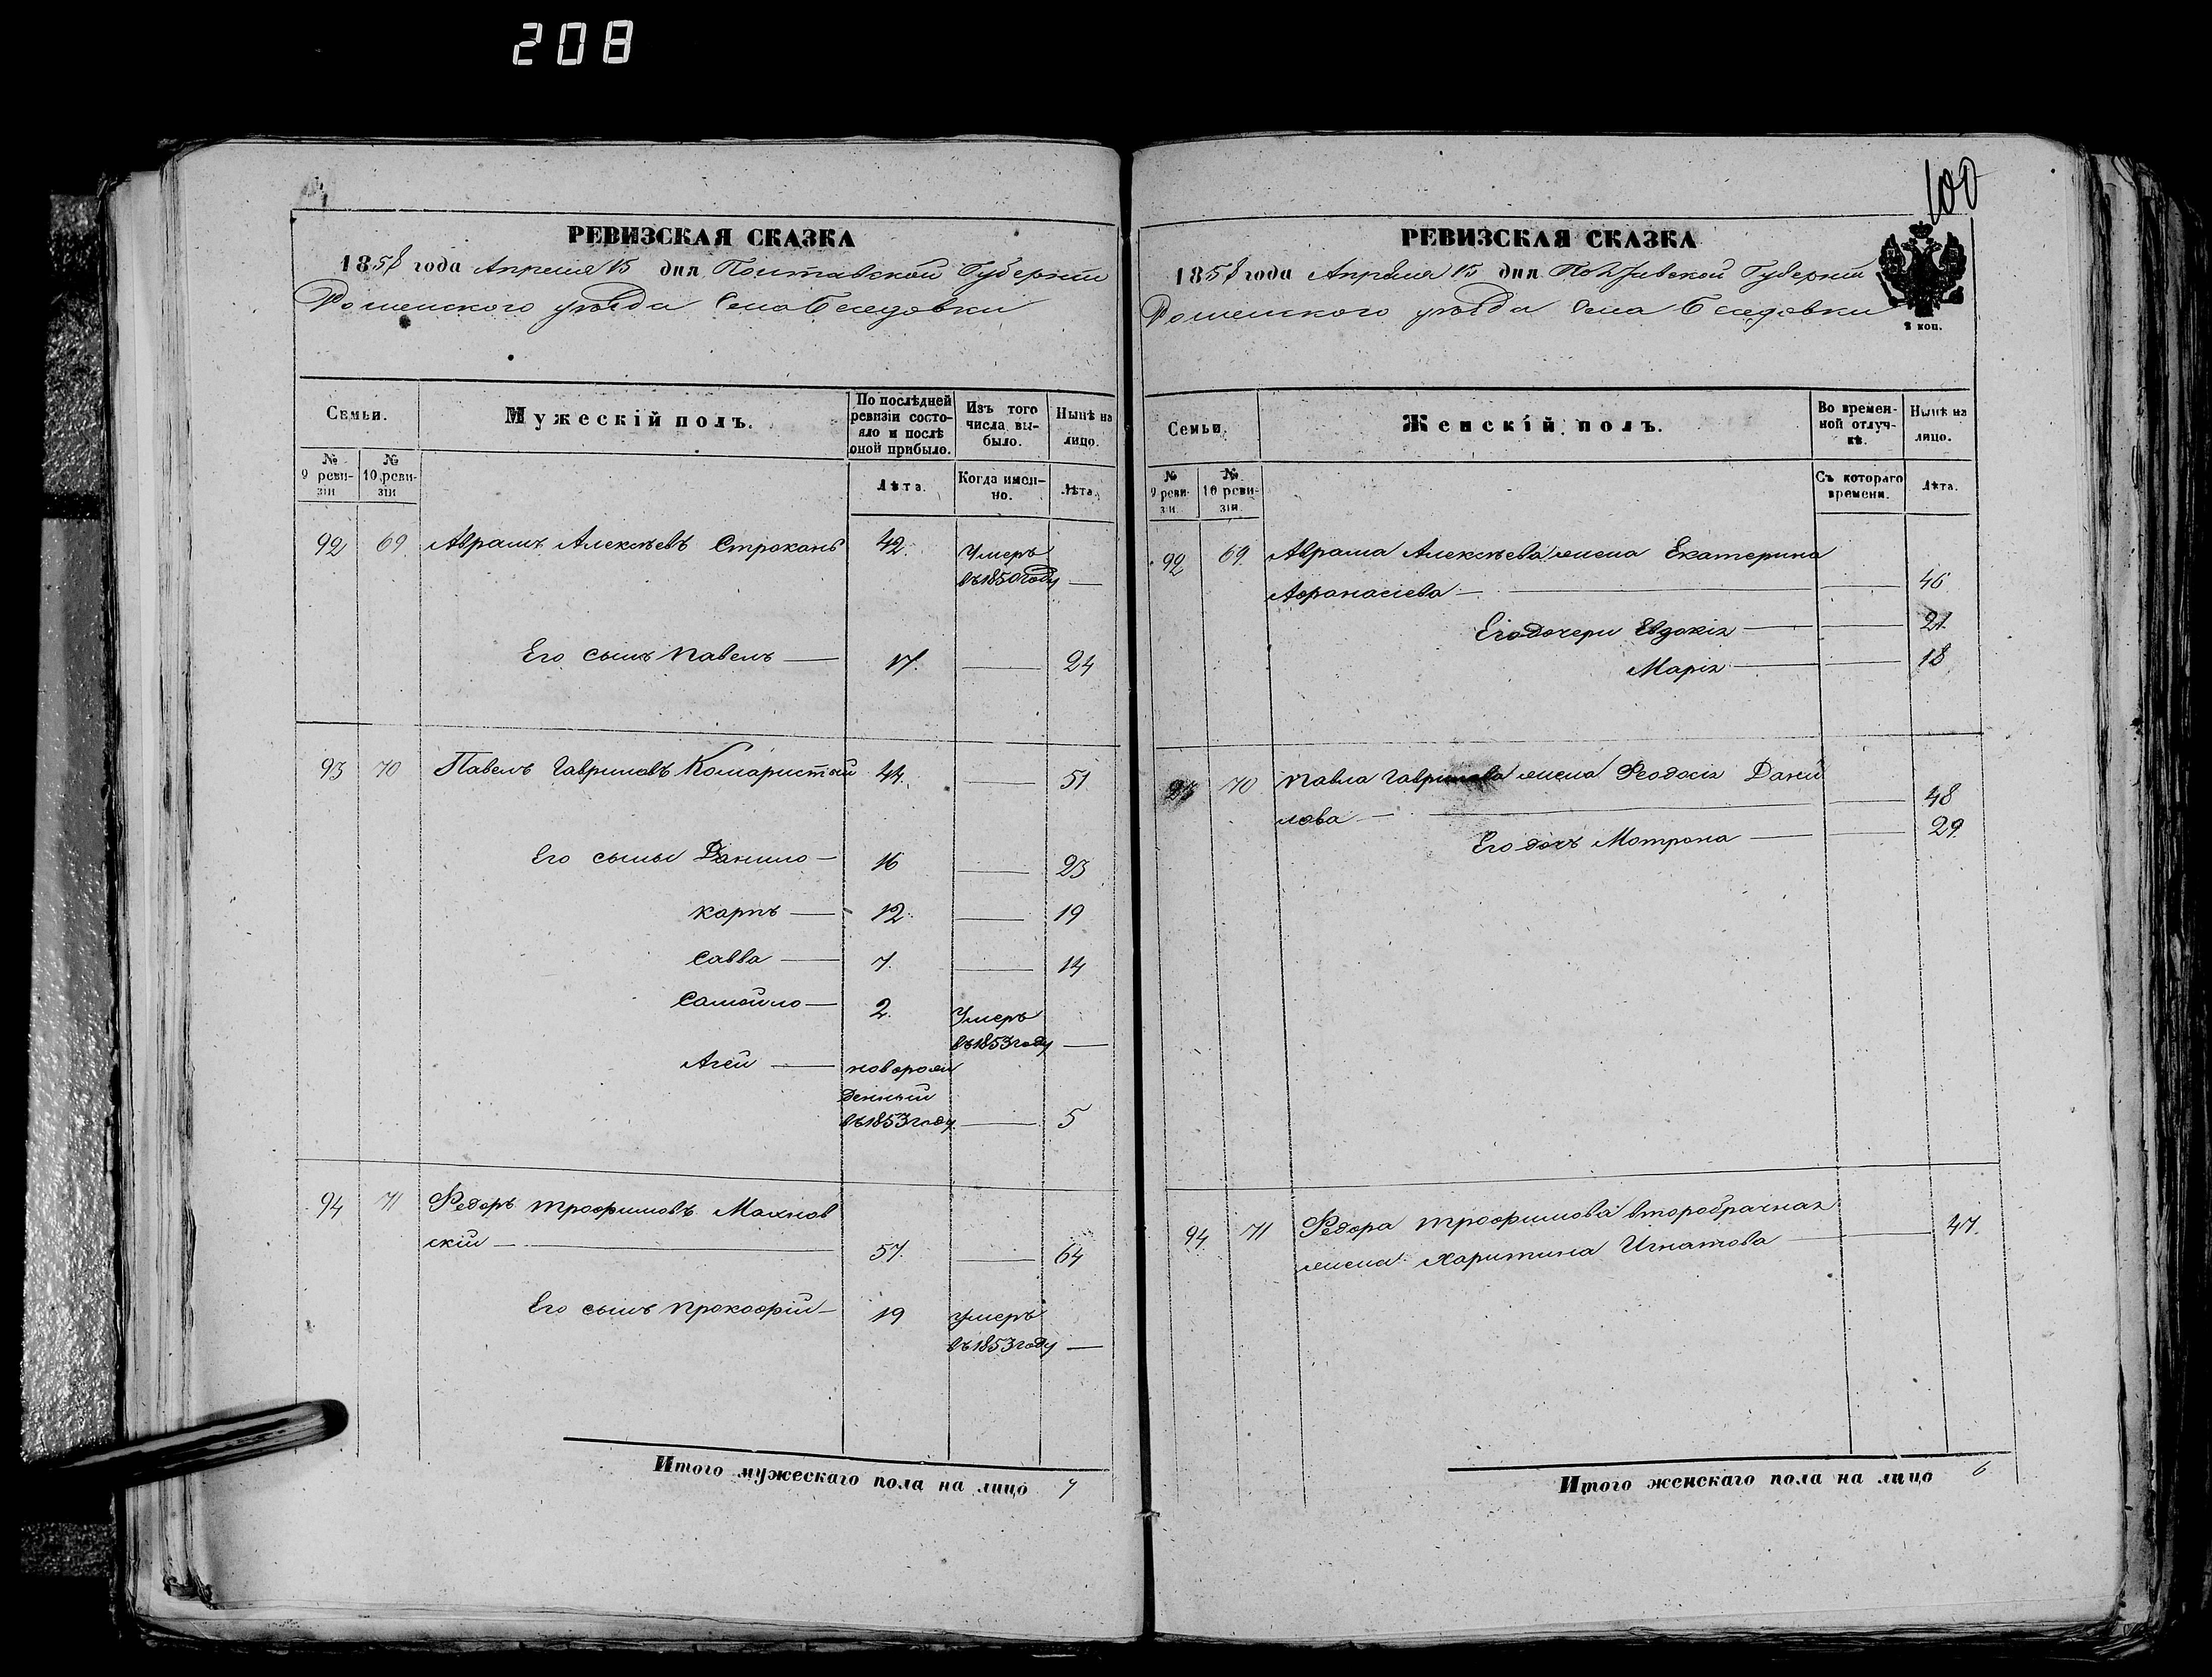 208
100
РЕВИЗСКАЯ СКАЗКА
1858 года Апреля 15 дня Полтавской Губернии
Роменского уѣзда Села Беседовки
Семьи.
Мужескій полъ.
По послѣдней ревизіи состояло и послѣ оной прибыло.
Изъ того числа выбыло.
Нынѣ на лицо.
№ 9 ревизіи
№ 10 ревизіи
Лѣта.
Когда именно.
Лѣта.
92 69 Аврамъ Алексѣевъ Строкань 42. Умеръ
въ 1850 году —
Его сынъ Павелъ — 17. — 24
93 70 Павелъ Гавриловъ Комаристый 44. — 51
Его сыны Данило — 16 — 23
Карпъ — 12. — 19
Савва — 7. — 14
Самойло — 2. Умеръ
въ 1853 году —
Агей —новорож
денный
въ 1853 году — 5
94 71 Федоръ Трофимовъ Махнов
скій — 57. — 64
Его сынъ Прокофій — 19 умеръ
въ 1853 году —
Итого мужескаго пола на лицо 7
РЕВИЗСКАЯ СКАЗКА
1858 года Апрѣля 15 дня Полтавской Губерніи
Роменского уѣзда Села Беседовки
2 коп.
Семьи.
Женскій полъ.
Во временной отлучкѣ.
Нынѣ на лицо.
№ 9 ревизіи.
№ 10 ревизіи.
Съ котораго времени.
Лѣта.
92 69. Аврама Алексѣева жена Екатерина
Афанасіева — — 46
Его дочери Евдокія — — 21.
Марія — — 18
93 70 Павла Гаврилова жена Феодосія Дани
лова — — 48
Его дочь Мотрона — — 29.
94 71 Федора Трофимова второбрачная
жена Харитина Игнатова — 47.
Итого женскаго пола на лицо 6